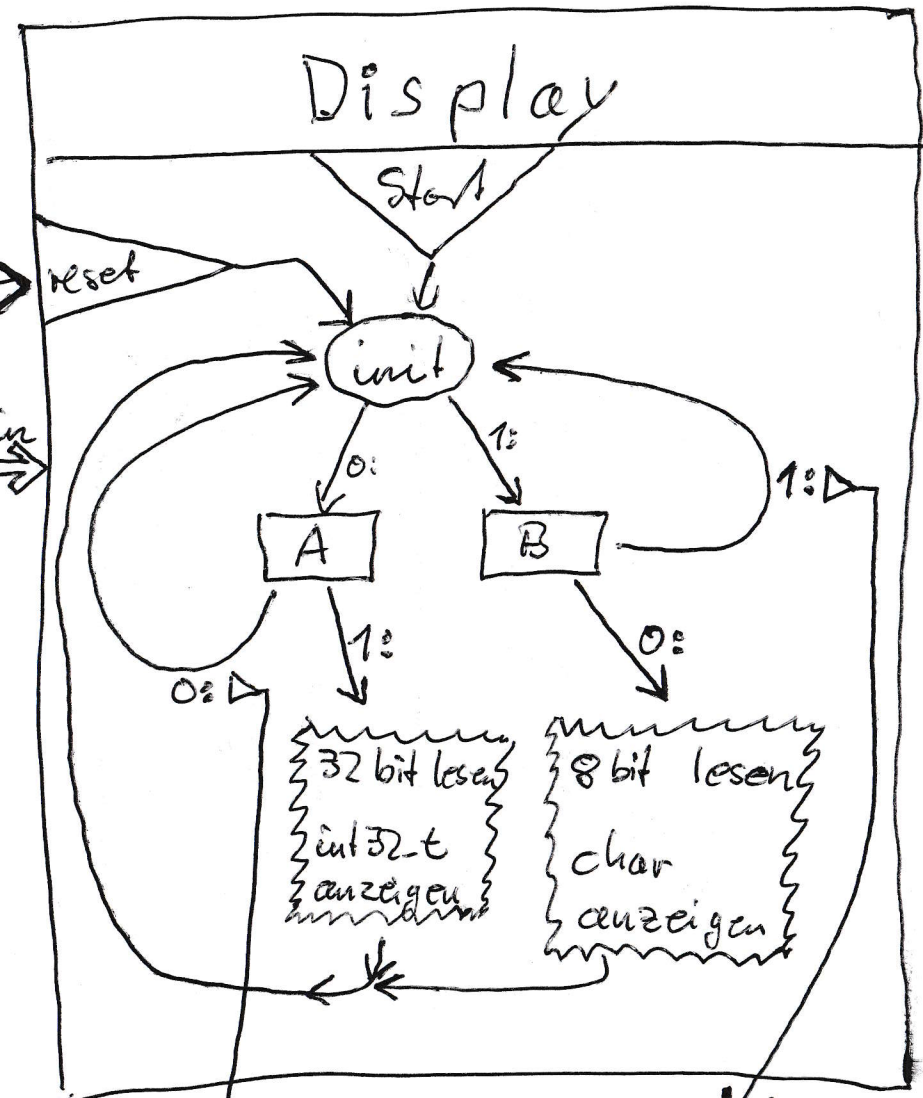 Display
Start
reset
init
0:
1:
1:
A
B
1:
0:
0:
32 bit lesen
int32_t
anzeigen
8 bit lesen
char
anzeigen